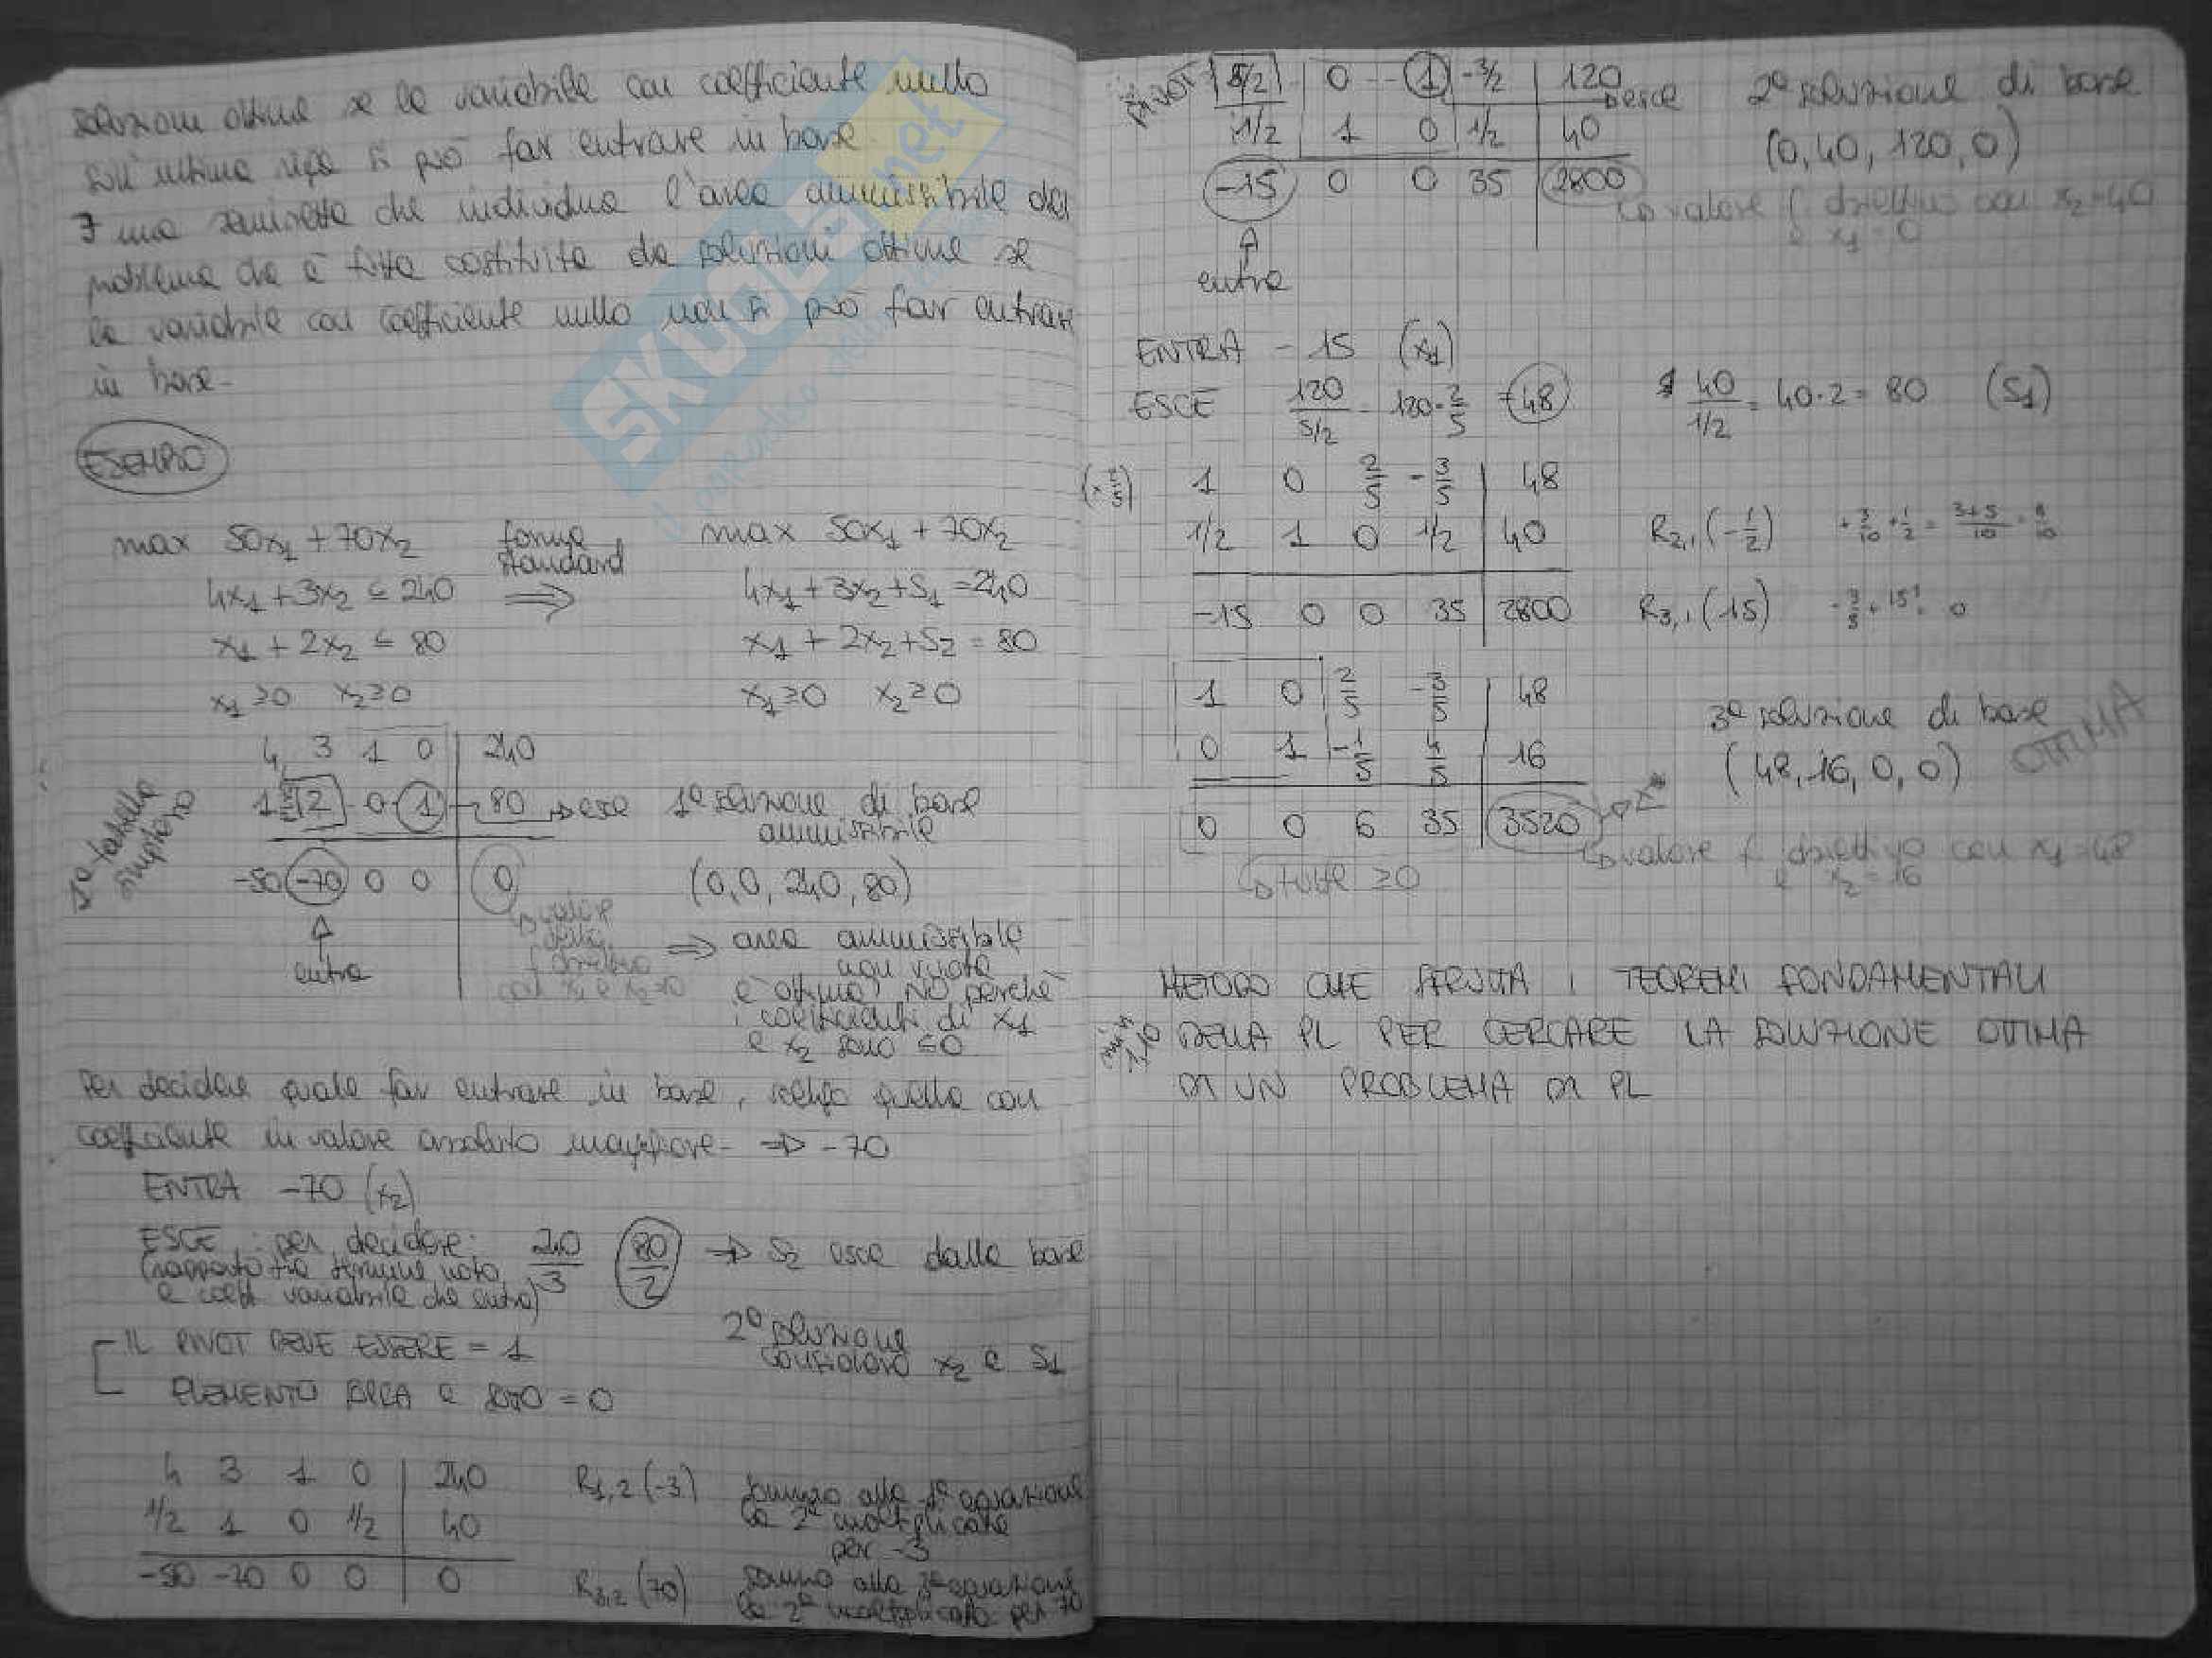 soluzioni ottime se la variabile con coefficiente nullo
sull'ultima riga si può far entrare in base.
∃ una semiretta che individua l'area ammissibile del
problema che è tutta costituita da soluzioni ottime se
la variabile con coefficiente nullo non si può far entrare
in base.
ESEMPIO
max 50x1 + 70x2 forma standard ⇒ max 50x1 + 70x2
4x1 + 3x2 ≤ 240 4x1 + 3x2 + S1 = 240
x1 + 2x2 ≤ 80 x1 + 2x2 + S2 = 80
x1 ≥ 0 x2 ≥ 0 x1 ≥ 0 x2 ≥ 0
4 3 1 0 | 240
1 2 0 1 | 80 → esce
-50 -70 0 0 | 0
entra
simplesso
1ª soluzione di base
ammissibile
(0,0,240,80)
valore
della
f. obiettivo
con x1 e x2=0
⇒ area ammissibile
non vuota
è ottima? NO perchè
i coefficienti di x1
e x2 sono ≤0
Per decidere quale far entrare in base, scelgo quella con
coefficiente in valore assoluto maggiore → -70
ENTRA -70 (x2)
ESCE : per decidere: 240/3 80/2 → S2 esce dalla base
(rapporto tra termine noto
e coeff. variabile che entra)
IL PIVOT DEVE ESSERE = 1
ELEMENTO SOPRA E SOTTO = 0
2ª soluzione
considero x2 e S1
4 3 1 0 | 240 R1,2 (-3) sommo alla 1ª equazione
la 2ª moltiplicata
per -3
1/2 1 0 1/2 | 40
-50 -70 0 0 | 0 R3,2 (70) sommo alla 3ª equazione
la 2ª moltiplicata per 70
pivot 5/2 0 1 -3/2 | 120 → esce
1/2 1 0 1/2 | 40
-15 0 0 35 | 2800
entra
2ª soluzione di base
(0,40,120,0)
↳ valore f. obiettivo con x2=40
e x1=0
ENTRA -15 (x1)
ESCE 120/5/2 = 120·2/5 = 48 40/1/2 = 40·2 = 80 (S1)
(×2/5) 1 0 2/5 -3/5 | 48
1/2 1 0 1/2 | 40 R2,1 (-1/2) +3/10 + 1/2 = 3+5/10 = 8/10
-15 0 0 35 | 2800 R3,1 (15)
1 0 2/5 -3/5 | 48
0 1 -1/5 4/5 | 16
0 0 6 35 | 3520 → z*
↳ tutte ≥0
3ª soluzione di base
(48,16,0,0) OTTIMA
↳ valore f. obiettivo con x1=48
e x2=16
METODO CHE SFRUTTA I TEOREMI FONDAMENTALI
DELLA PL PER CERCARE LA SOLUZIONE OTTIMA
DI UN PROBLEMA DI PL
SKUOLA.net